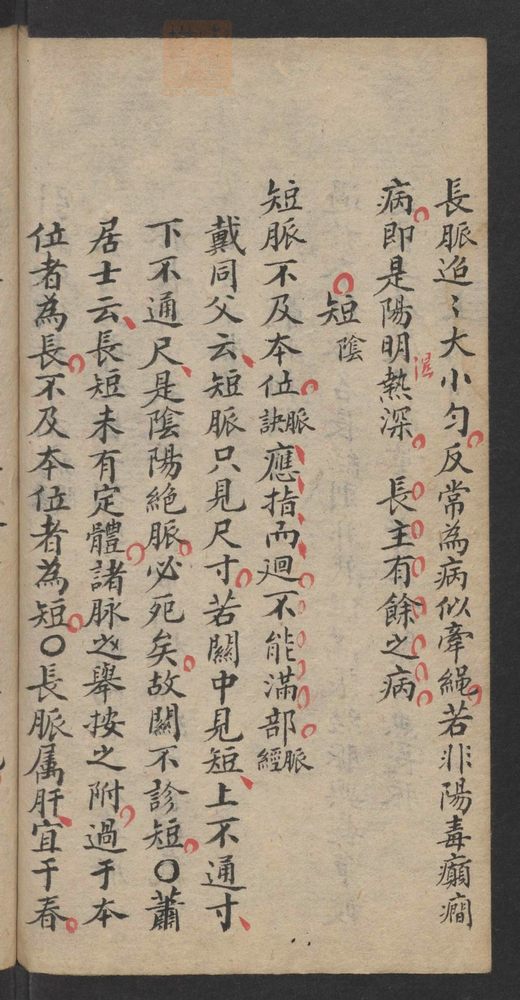 長脈迢〻大小勻反常為病似牽繩若非陽毒癲癇
病即是陽明熱深　長主有餘之病
短陰
短脈不及本位脈訣應指而廻不能滿部脈經
戴同父云短脈只見尺寸若關中見短上不通寸
下不通尺是陰陽絕脈必死矣故關不診短○蕭
居士云長短未有定體諸脉之舉按之附過于本
位者為長不及本位者為短○長脈属肝宜于春